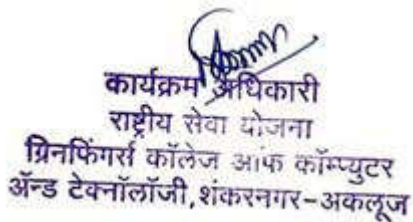 कार्यक्रम अधिकारी
राष्ट्रीय सेवा योजना
ग्रिनफिंगर्स कॉलेज आफ कॉम्प्युटर
ॲन्ड टेक्नॉलॉजी,शंकरनगर-अकलूज